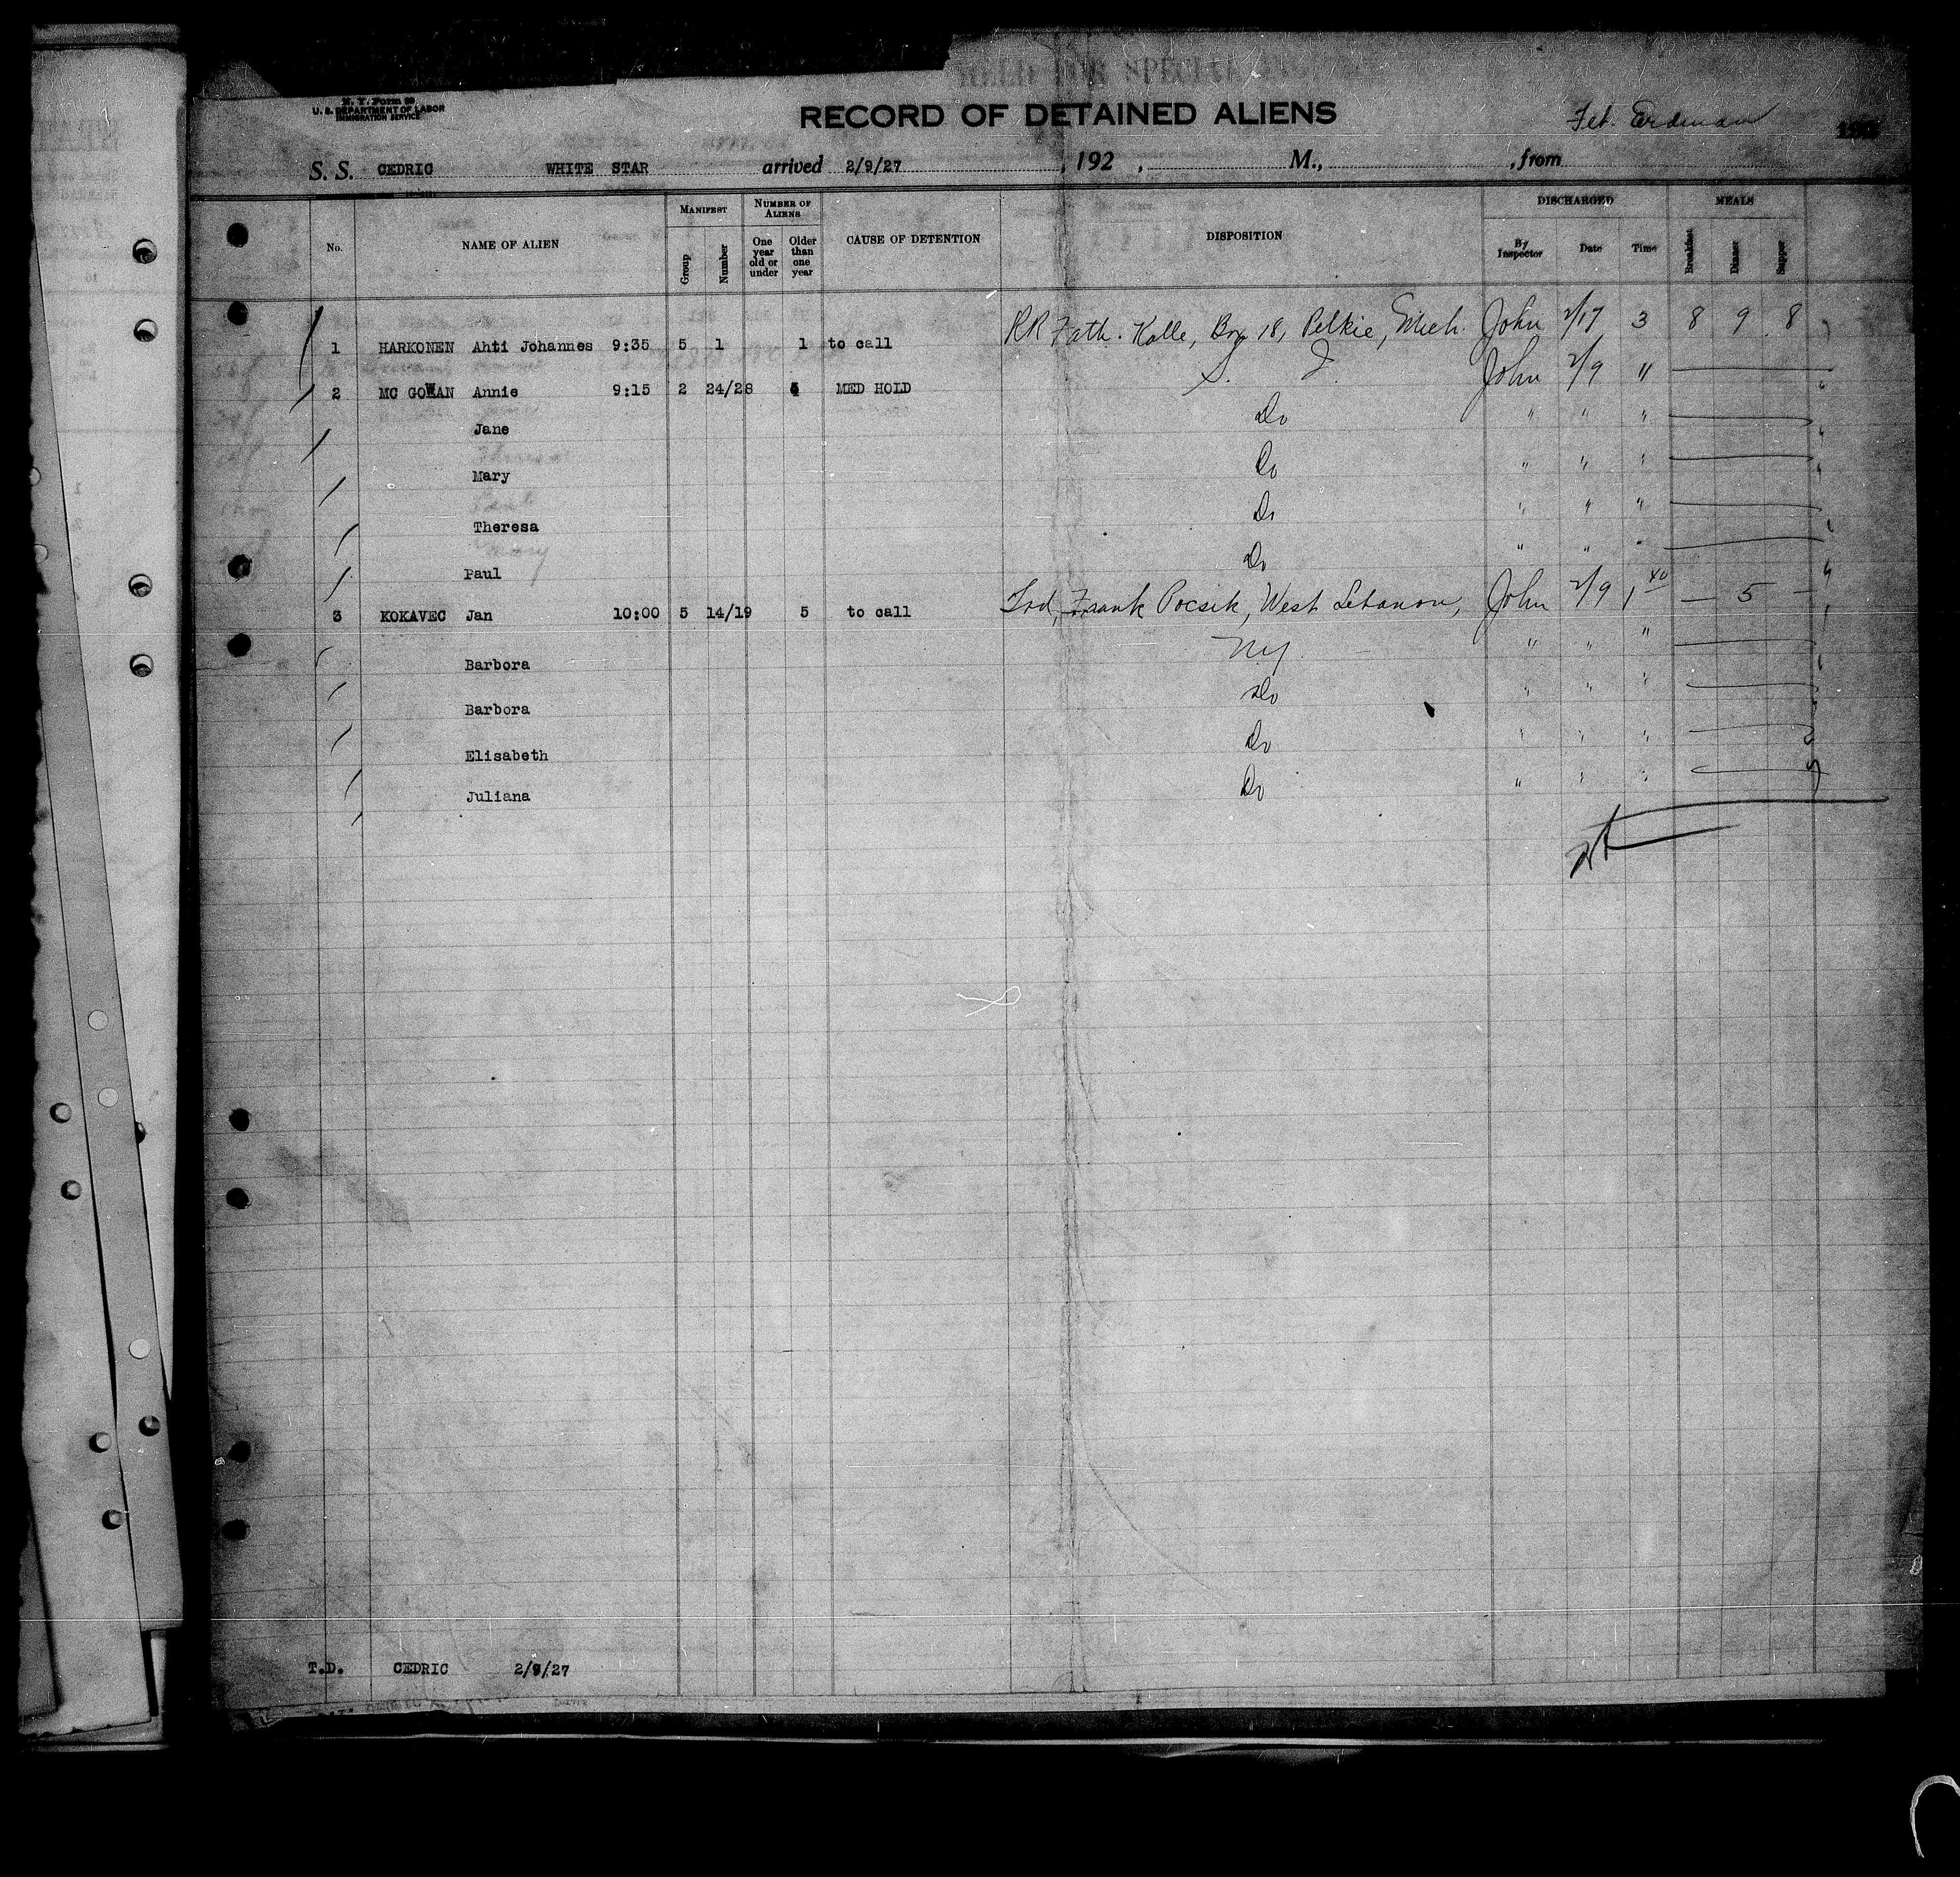 HELD FOR SPECIAL
N. Y. Form
U. S. DEPARTMENT OF LABOR
IMMIGRATION SERVICE
RECORD OF DETAINED ALIENS
Erdman
S. S. CEDRIC WHITE STAR arrived 2/9/27 , 192 , M., , from
No. NAME OF ALIEN MANIFEST Group Number NUMBER OF ALIENS One year old or under Older than one year CAUSE OF DETENTION DISPOSITION DISCHARGED By Inspector Date Time MEALS Breakfast Dinner Supper
1 HARKONEN Ahti Johannes 9:35 5 1 1 to call RR Fath. Kalle, Box 18, Pelkie, Mich. John 2/17 3 8 9 8
2 MC GOWAN Annie 9:15 2 24/28 MED HOLD S. I. John 2/9 "
Jane Do " " "
Mary Do " " "
Theresa Do " " "
Paul Do " " "
3 KOKAVEC Jan 10:00 5 14/19 5 to call Frank Pocsik, West Lebanon, John 2/9 1 40 — 5 —
Barbora NY. " " "
Barbora Do " " "
Elisabeth Do " " "
Juliana Do " " "
T.D. CEDRIC 2/9/27